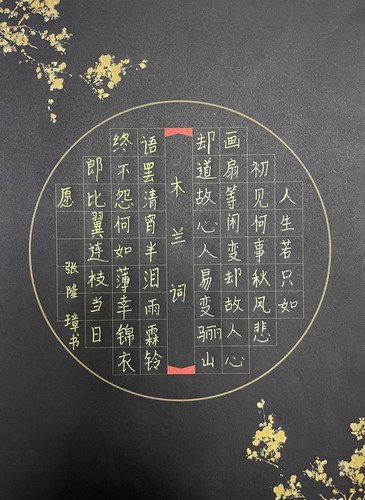 人生若只如
初见何事秋风悲
画扇等闲变却故人心
却道故心人易变骊山
木兰词
语罢清宵半泪雨霖铃
终不怨何如薄幸锦衣
郎比翼连枝当日
愿
张隆璋书